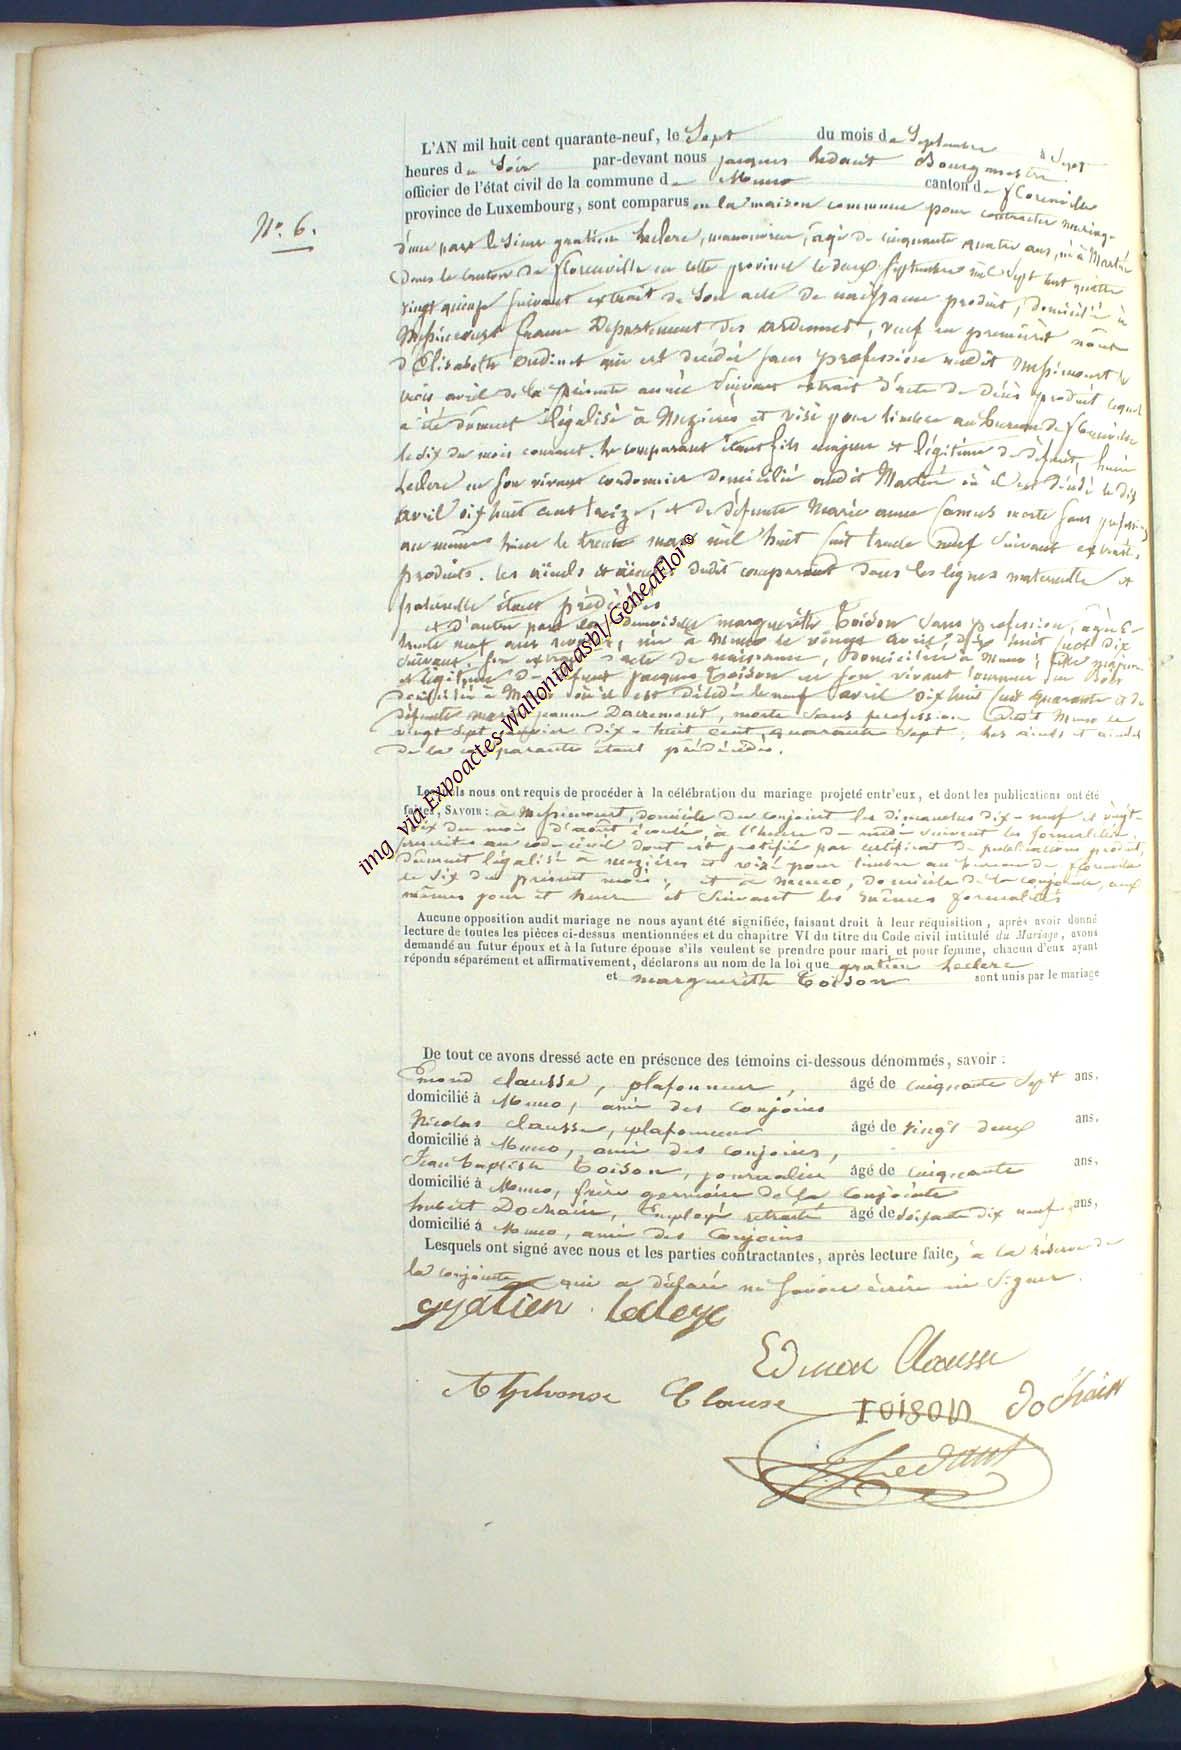 L'AN mil huit cent quarante-neuf, le Sept du mois de Septembre à Sept
heures du Soir par-devant nous jacques hedant Bourgmestre
officier de l'état civil de la commune de Muno canton de florenville
province de Luxembourg, sont comparus en la maison commune pour contracter mariage
No. 6.
d'une part le Sieur gratien Leclerc, manoeuvre, âgé de cinquante quatre ans, né à Martué
Dans le Canton de florenville en cette province le deux Septembre mil Sept cent quatre
vingt quinze suivant extrait de Son acte de naissance produit, domicilié à
Messincourt france Departement des ardennes, veuf en premières nôces
d'Elisabeth oudinet qui est décédée sans profession audit Messincourt le
trois avril de la présente année Suivant extrait d'acte de décès produit lequel
a été dûment légalisé à Mézières et visé pour timbre au bureau de florenville
le six du mois courant. Le comparant étant fils majeur et légitime de défunt,
Leclerc en son vivant cordonnier domicilié audit Martué où il est décédé le dix
avril dix huit cent treize, et de défunte Marie anne morte sans profession
au même lieu le trente mars mil huit cent trente neuf suivant extraits
produits. les aïeuls et aïeules dudit comparant dans les lignes maternelle et
paternelle étant prédécédés
et d'autre part la demoiselle marguerith Toison Sans profession, âgée de
trente neuf ans, née à Muno le vingt avril dix huit cent dix
suivant son extrait d'acte de naissance, domiciliée à Muno, fille majeure
et légitime de défunt jacques Toison en son vivant tourneur en Bois
domicilié à Muno où il est décédé le neuf avril dix huit cent quarante et de
défunte marie jeanne Dacremont, morte sans profession audit Muno le
vingt sept janvier dix-huit cent quarante sept; les aïeuls et aïeules
de la comparante étant prédécédés.
Lesquels nous ont requis de procéder à la célébration du mariage projeté entr'eux, et dont les publications ont été
faites, SAVOIR : à Messincourt, domicile du conjoint les dimanches dix-neuf et vingt-
six du mois d'août écoulé, à l'heure de midi suivant les formalités
prescrites au code civil dont est justifié par certificat de publications produit,
dûment légalisé à mezières et visé pour timbre au bureau de florenville
le six du présent mois; et à muno, domicile de la conjointe, aux
mêmes jour et heure et suivant les mêmes formalités
Aucune opposition audit mariage ne nous ayant été signifiée, faisant droit à leur réquisition, après avoir donné
lecture de toutes les pièces ci-dessus mentionnées et du chapitre VI du titre du Code civil intitulé du Mariage, avons
demandé au futur époux et à la future épouse s'ils veulent se prendre pour mari et pour femme, chacun d'eux ayant
répondu séparément et affirmativement, déclarons au nom de la loi que gratien Leclerc
et marguerith Toison sont unis par le mariage
De tout ce avons dressé acte en présence des témoins ci-dessous dénommés, savoir :
Emond clausse, plafonneur, âgé de cinquante Sept ans,
domicilié à Muno, ami des conjoins
Nicolas clausse, plafonneur âgé de vingt deux ans,
domicilié à Muno, ami des conjoins,
Jean baptiste Toison, journalier âgé de cinquante ans,
domicilié à Muno, frère germain de la conjointe
hubert Dochain, Employé retraité âgé de soixante dix neuf ans,
domicilié à Muno, ami des conjoins
Lesquels ont signé avec nous et les parties contractantes, après lecture faite, à la réserve de
la conjointe qui a déclaré ne savoir écrire ni signer.
gratien lecleye
Edmon Clausse
Alphonse Clause TOISON dochain
J hedant
img via Expoactes-Wallonia-asbl/GeneaFloi ©